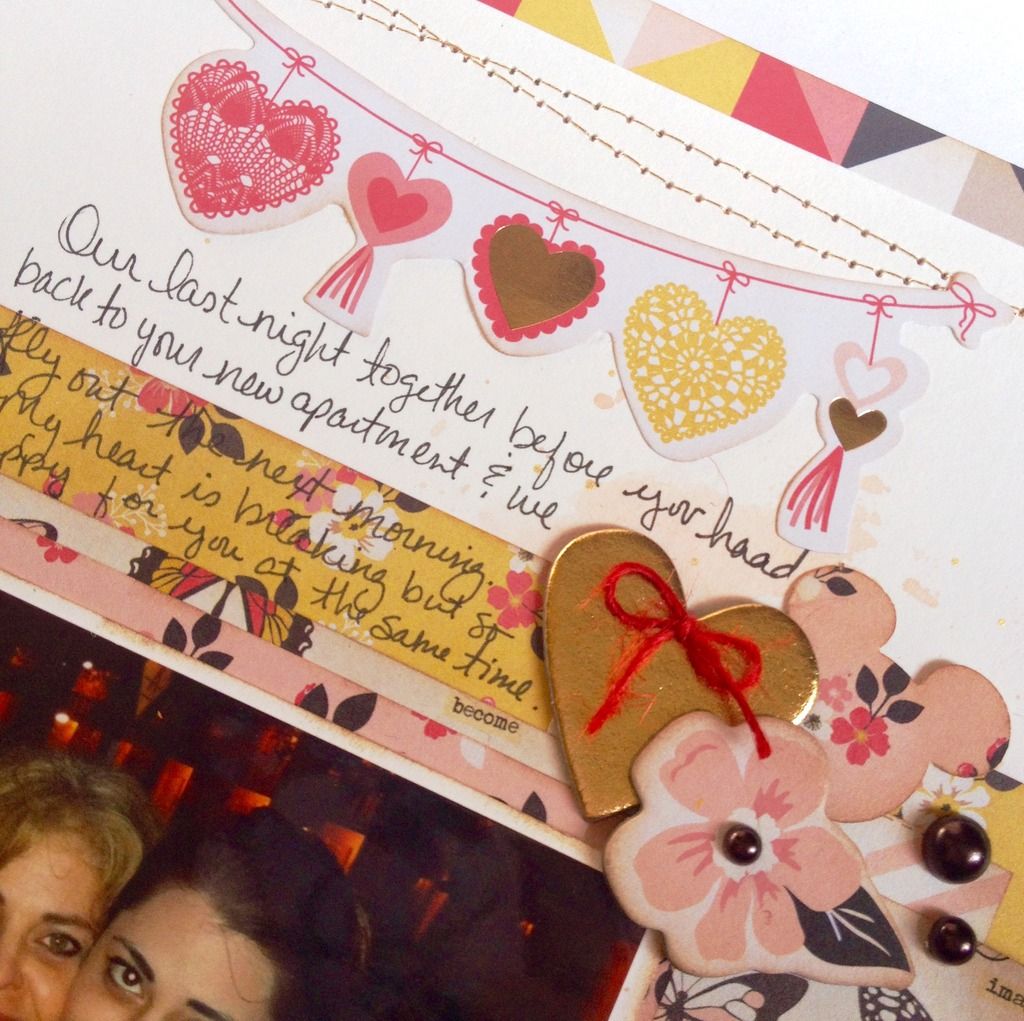 Our last night together before you head
back to your new apartment & we
fly out the next morning.
My heart is breaking but so
ppy for you at the same time.
become
ima